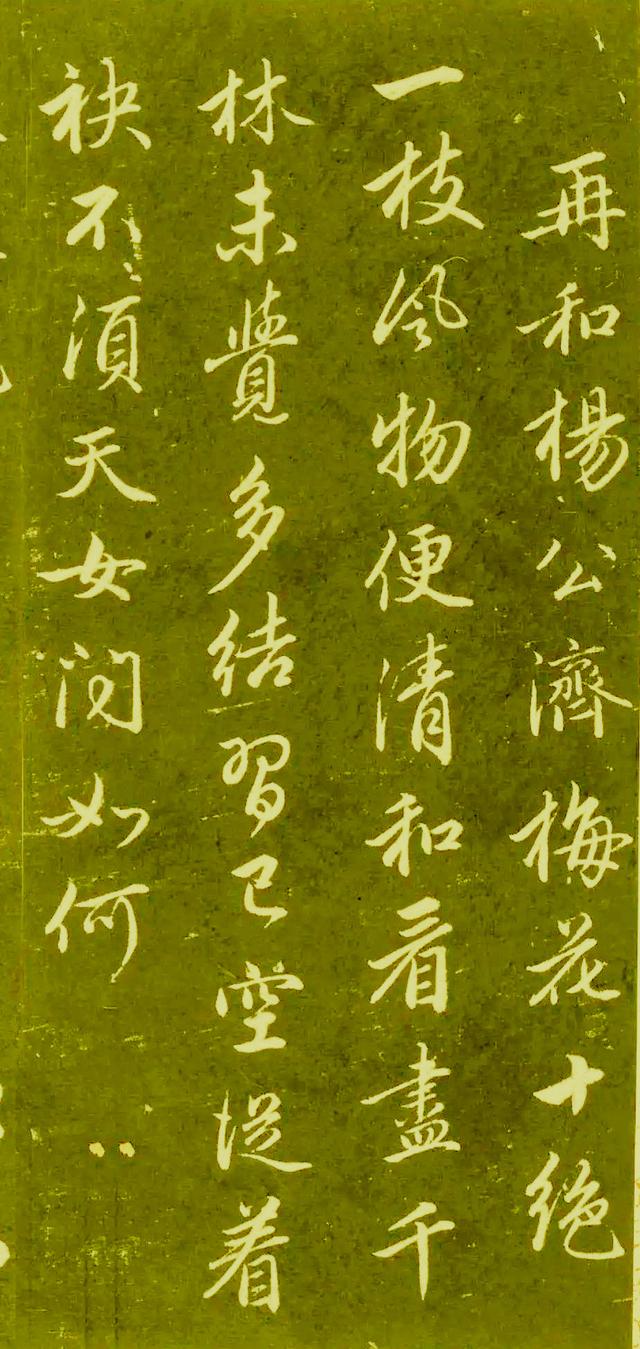 再和楊公濟梅花十絶
一枝風物便清和看盡千
林未覺多結習已空從着
袂不須天女問如何